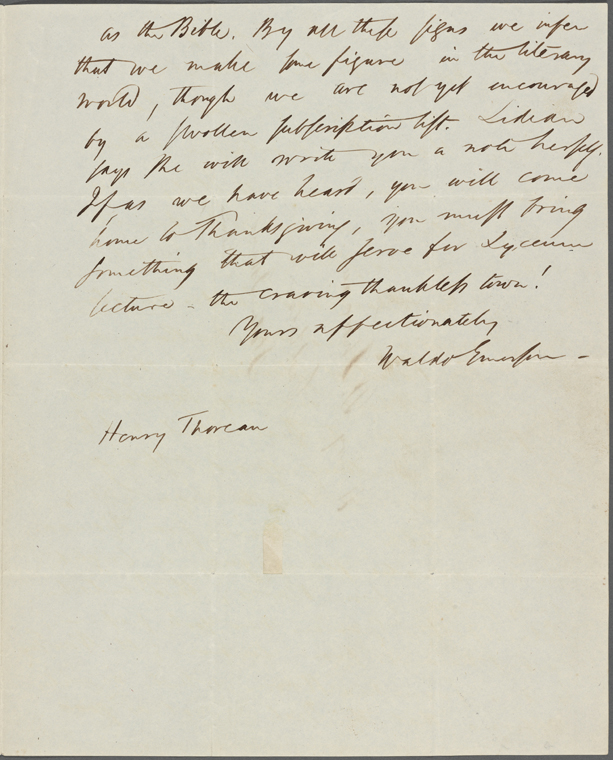 as the Bible. By all these signs we infer
that we make some figure in the literary
world, though we are not yet encouraged
by a swollen subscription list. Lidian
says she will write you a note herself.
If, as we have heard, you will come
home to Thanksgiving, you must bring
something that will serve for Lyceum
lecture - the craving thankless town!
Yours affectionately,
Waldo Emerson -
Henry Thoreau